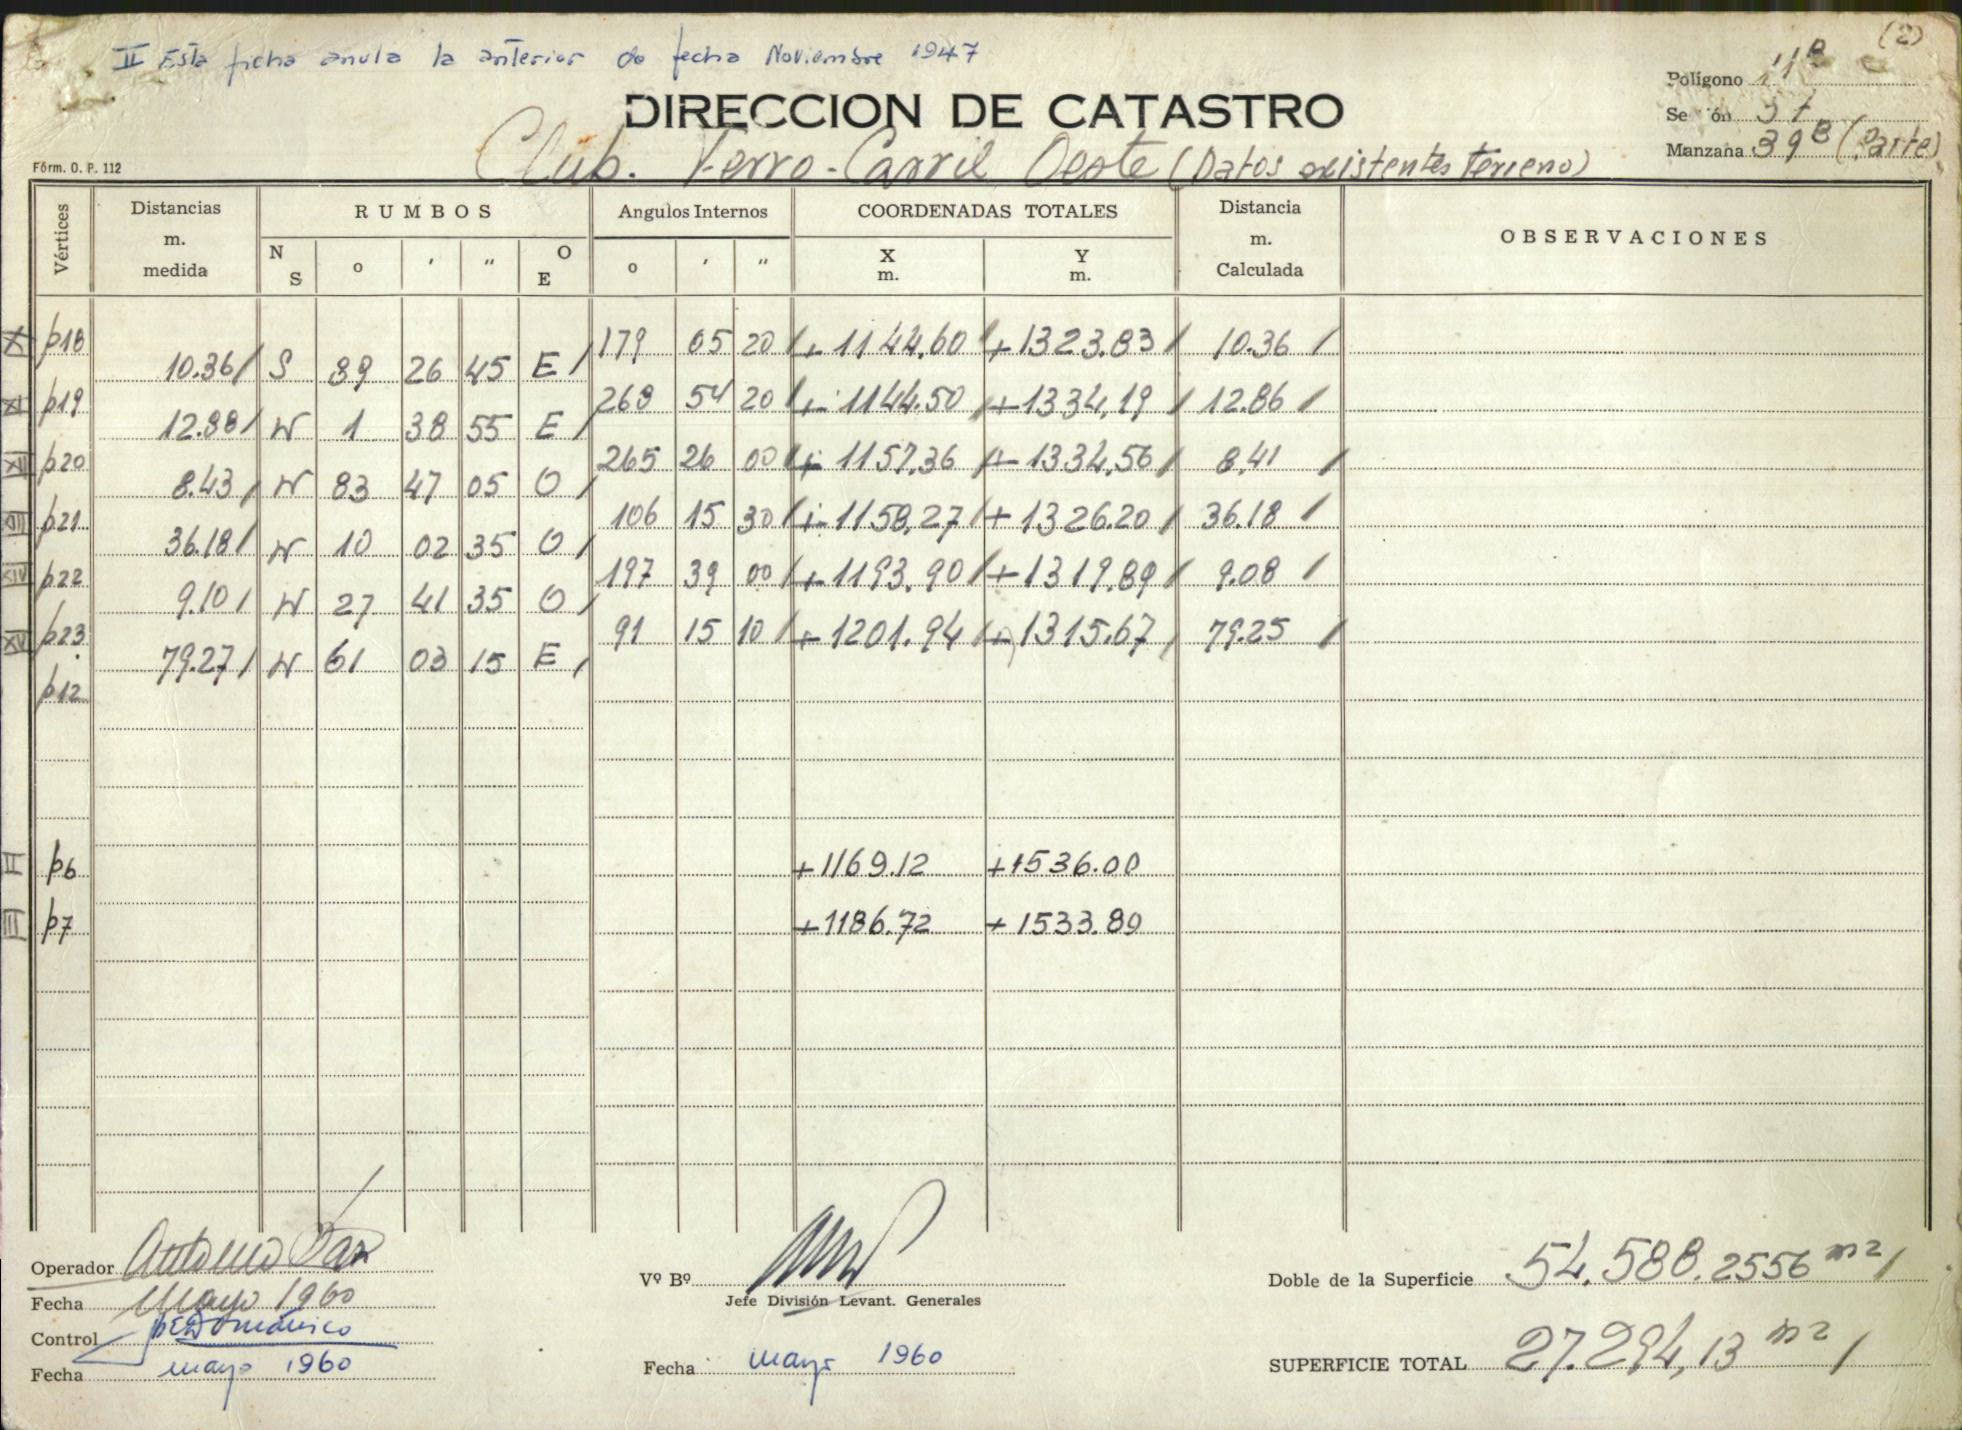 (2)
II Esta ficha anula la anterior de fecha Noviembre 1947
Polígono 11B
DIRECCION DE CATASTRO
Se ón 37
Manzana 39B (Parte)
Club. Ferro-Carril Oeste (Datos existentes terreno)
Fórm. O. P. 112
Vértices Distancias m. medida RUMBOS Angulos Internos COORDENADAS TOTALES Distancia m. Calculada OBSERVACIONES
N S o ' " O E o ' " X m. Y m.
X p18 179 05 20 / + 1144.60 / + 1323.83 / 10.36 /
10.36 / S 89 26 45 E /
XI p19 268 54 20 / + 1144.50 / + 1334,19 / 12.86 /
12.88 / N 1 38 55 E /
XII p20 265 26 00 / + 1157.36 / + 1334,56 / 8.41 /
8.43 / N 83 47 05 O /
XIII p21 106 15 30 / + 1158,27 / + 1326.20 / 36.18 /
36.18 / N 10 02 35 O /
XIV p22 197 39 00 / + 1193.90 / + 1319.89 / 9.08 /
9.10 / N 27 41 35 O /
XV p23 91 15 10 / + 1201.94 / + 1315.67 / 79.25 /
79.27 / N 61 03 15 E /
p12
II p6 +1169.12 +1536.00
III p7 +1186.72 + 1533.89
Operador Antonio
Fecha mayo 1960
Control
Fecha mayo 1960
Vº Bº
Jefe División Levant. Generales
Fecha mayo 1960
Doble de la Superficie 54.588.2556 m2 /
SUPERFICIE TOTAL 27.294,13 m2 /